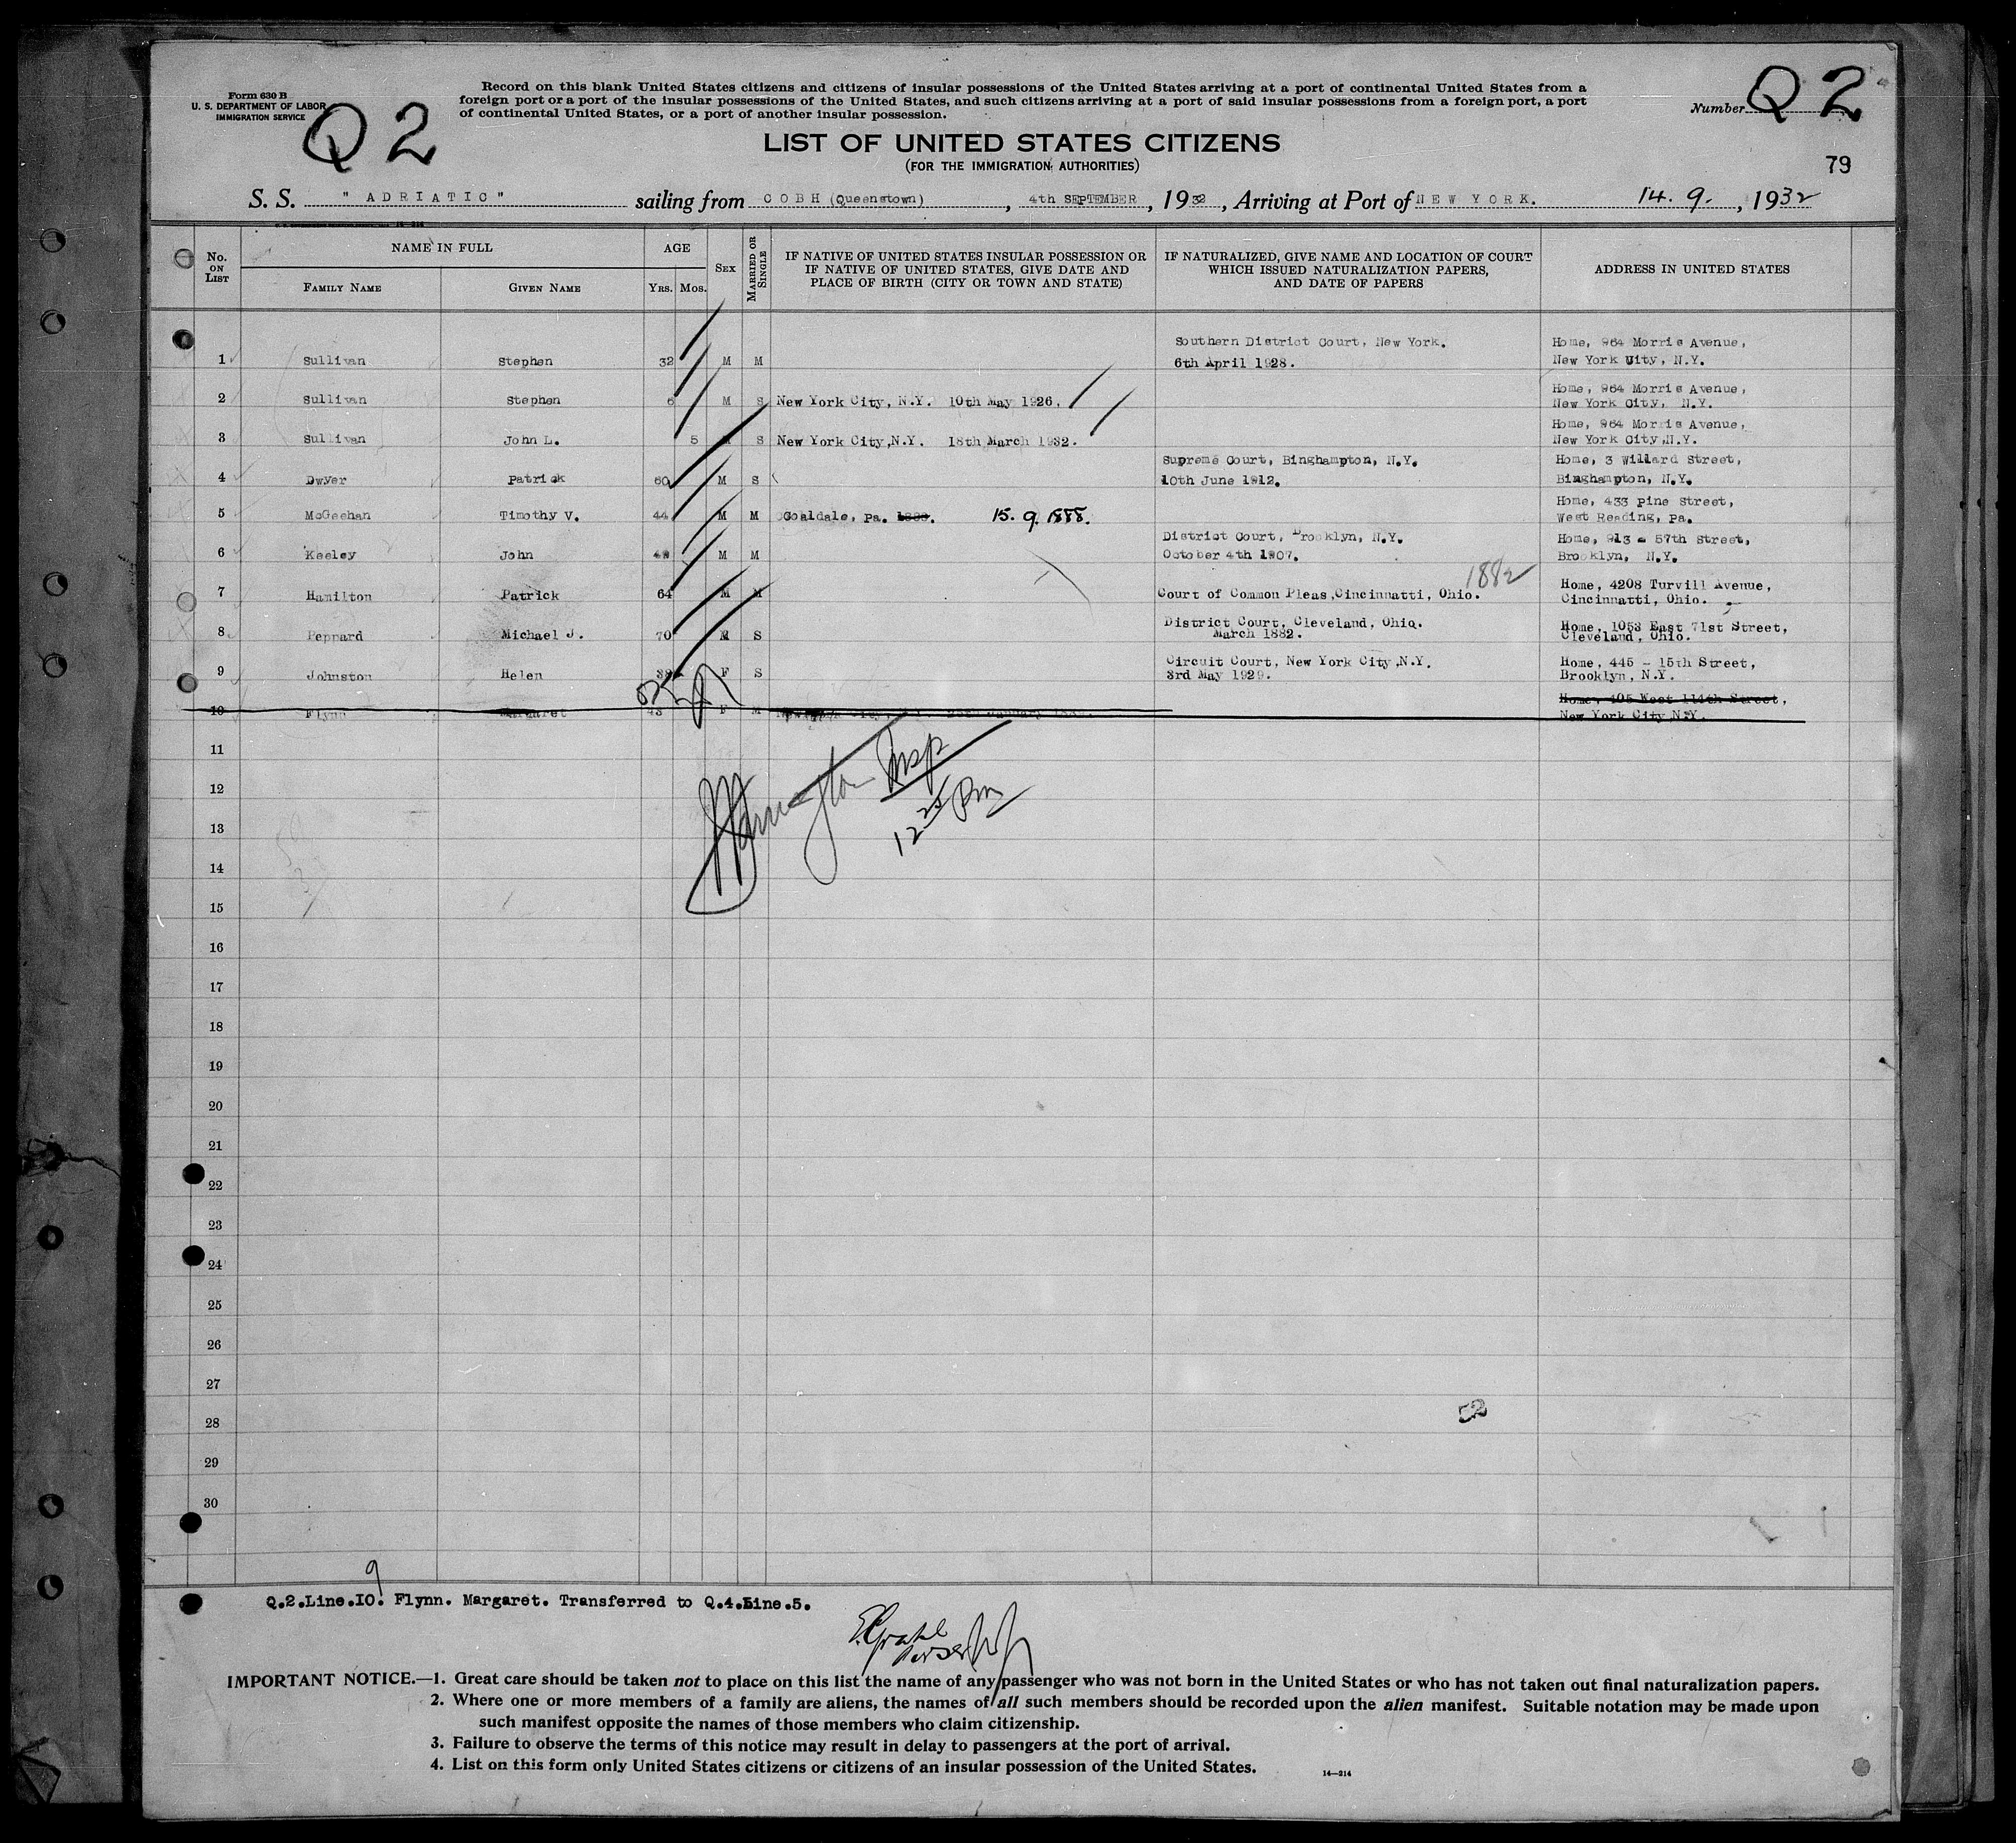 Form 630 B
U. S. DEPARTMENT OF LABOR
IMMIGRATION SERVICE
Q 2
Record on this blank United States citizens and citizens of insular possessions of the United States arriving at a port of continental United States from a
foreign port or a port of the insular possessions of the United States, and such citizens arriving at a port of said insular possessions from a foreign port, a port
of continental United States, or a port of another insular possession.
Number Q 2
LIST OF UNITED STATES CITIZENS
(FOR THE IMMIGRATION AUTHORITIES)
79
S. S. "ADRIATIC" sailing from COBH (Queenstown), 4th SEPTEMBER, 1932, Arriving at Port of NEW YORK. 14. 9. , 1932
No. ON LIST
NAME IN FULL
FAMILY NAME
GIVEN NAME
AGE
YRS. MOS.
SEX
MARRIED OR SINGLE
IF NATIVE OF UNITED STATES INSULAR POSSESSION OR
IF NATIVE OF UNITED STATES, GIVE DATE AND
PLACE OF BIRTH (CITY OR TOWN AND STATE)
IF NATURALIZED, GIVE NAME AND LOCATION OF COURT
WHICH ISSUED NATURALIZATION PAPERS,
AND DATE OF PAPERS
ADDRESS IN UNITED STATES
Southern District Court, New York. Home, 964 Morris Avenue,
1 Sullivan Stephen 32 M M 6th April 1928. New York City, N.Y.
Home, 964 Morris Avenue,
2 Sullivan Stephen 6 M S New York City, N.Y. 10th May 1926. New York City, N.Y.
Home, 964 Morris Avenue,
3 Sullivan John L. 5 M S New York City,N.Y. 18th March 1932. New York City,N.Y.
Supreme Court, Binghampton, N.Y. Home, 3 Willard Street,
4 Dwyer Patrick 60 M S 10th June 1912. Binghampton, N.Y.
Home, 433 Pine Street,
5 McGeehan Timothy V. 44 M M Coaldale, Pa. 1888. 15. 9. 1888. West Reading, Pa.
District Court, Brooklyn, N.Y. Home, 913 - 57th Street,
6 Keeley John M M October 4th 1907. Brooklyn, N.Y.
1882
Home, 4208 Turvill Avenue,
7 Hamilton Patrick 64 M M Court of Common Pleas,Cincinnatti, Ohio. Cincinnatti, Ohio.
District Court, Cleveland, Ohio. Home, 1053 East 71st Street,
8 Peppard Michael J. 70 M S March 1882. Cleveland, Ohio.
Circuit Court, New York City,N.Y. Home, 445 - 15th Street,
9 Johnston Helen 38 F S 3rd May 1929. Brooklyn, N.Y.
Home, 405 West 114th Street,
10 Flynn Margaret 43 F M New York City, New York City N.Y.
Insp
12 25 Pm
11
12
13
14
15
16
17
18
19
20
21
22
23
24
25
26
27
28
52
29
30
9
Q.2.Line.10. Flynn. Margaret. Transferred to Q.4.Line.5.
IMPORTANT NOTICE.—1. Great care should be taken not to place on this list the name of any passenger who was not born in the United States or who has not taken out final naturalization papers.
2. Where one or more members of a family are aliens, the names of all such members should be recorded upon the alien manifest. Suitable notation may be made upon
such manifest opposite the names of those members who claim citizenship.
3. Failure to observe the terms of this notice may result in delay to passengers at the port of arrival.
4. List on this form only United States citizens or citizens of an insular possession of the United States.
14—214